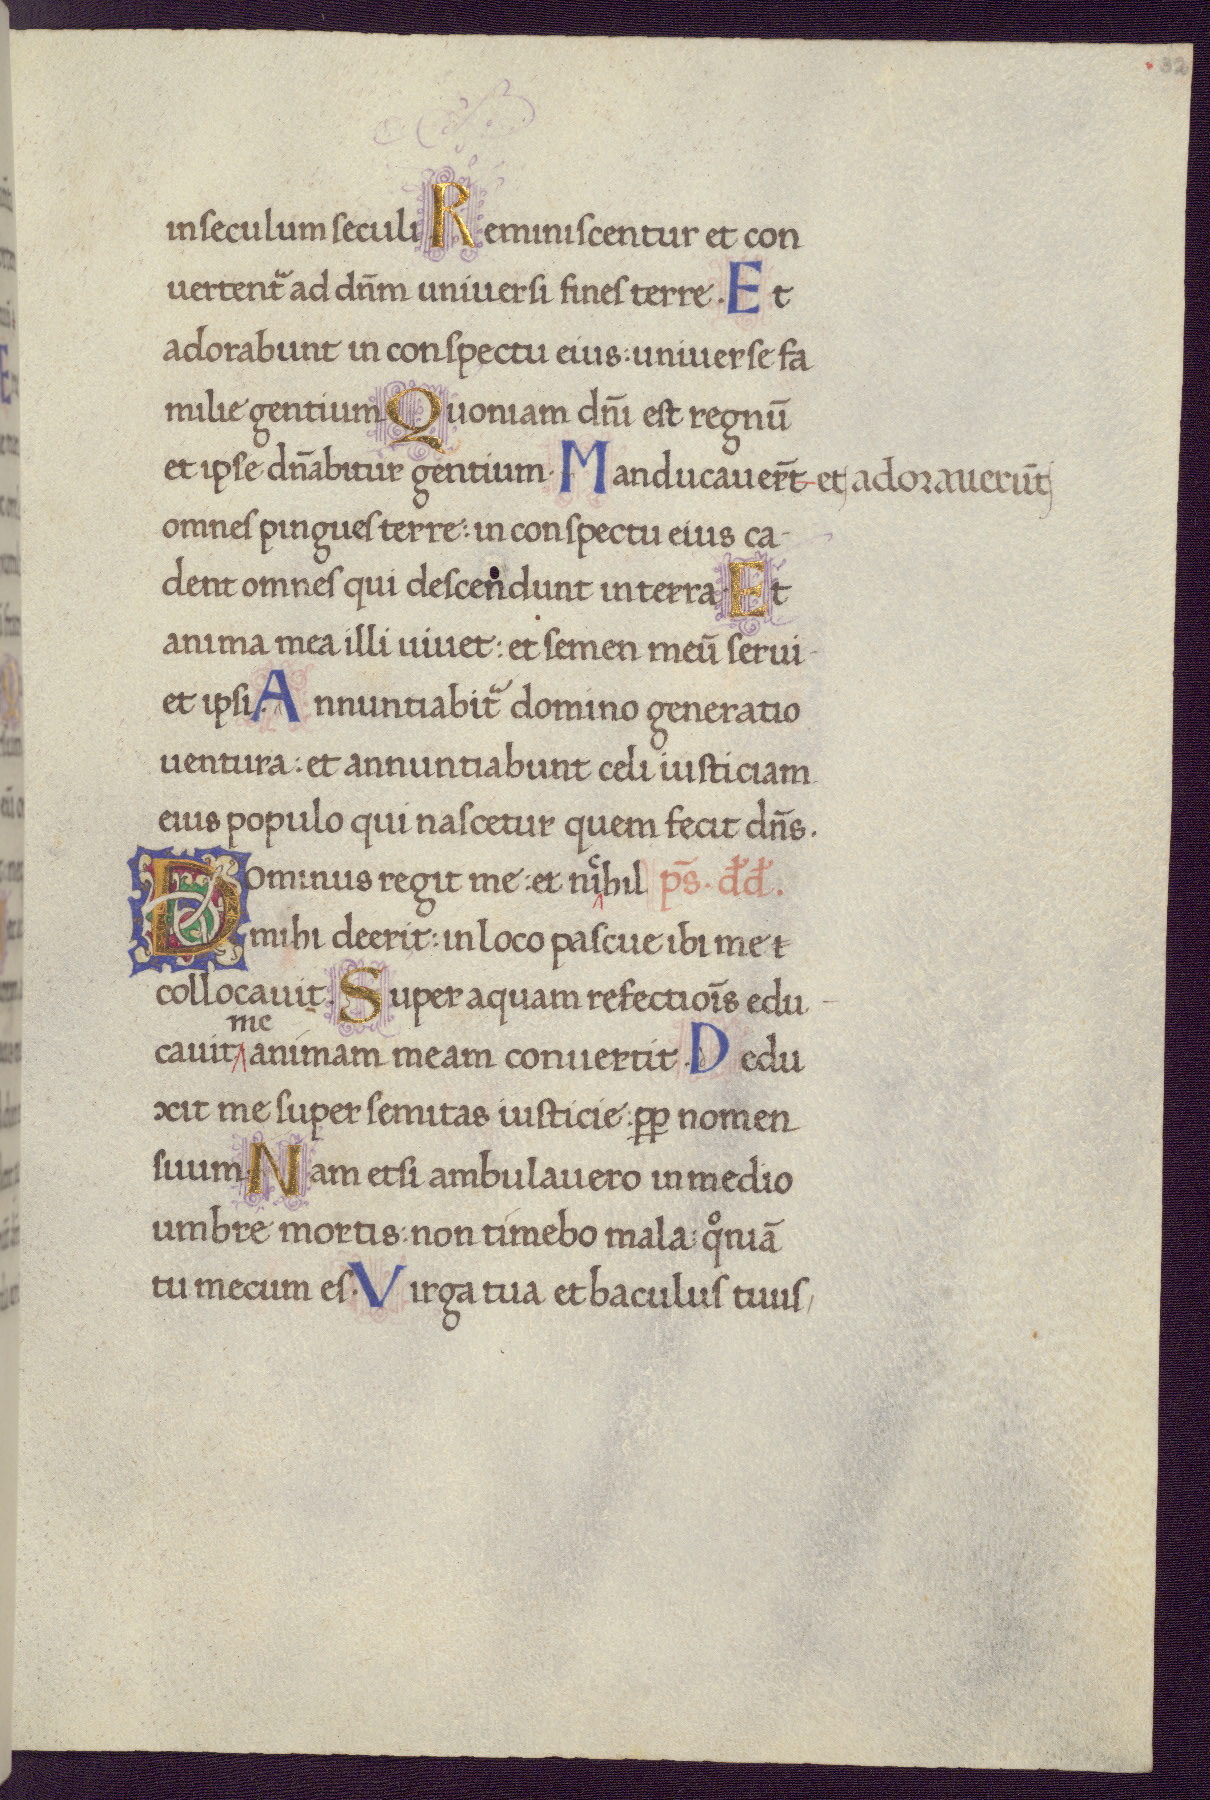 32
in seculum seculi Reminiscentur et con
uertent᷑ ad dñm uniuersi fines terre. Et
adorabunt in conspectu eius: uniuerse fa
milie gentium Quoniam dñi est regnū
et ipse dñabitur gentium. Manducauer̄t et adorauerūt
omnes pingues terre: in conspectu eius ca-
dent omnes qui descendunt in terra Et
anima mea illi uiuet: et semen meū serui-
et ipsi. Annuntiabit᷑ domino generatio
uentura: et annuntiabunt celi iusticiam
eius populo qui nascetur quem fecit dñs.
Dominus regit me: et nihil pš. dd.
mihi deerit: in loco pascue ibi me t
collocauit. Super aquam refectiōis edu-
me
cauit animam meam conuertit. Dedu
xit me super semitas iusticie: pp nomen
suum Nam etsi ambulauero in medio
umbre mortis: non timebo mala: qºniā
tu mecum es. Virga tua et baculus tuus